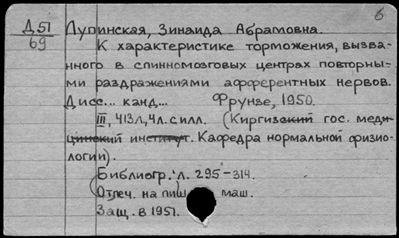 6
Д51
69
Лупинская, Зинаида Абрамовна.
К характеристике торможения, вызва-
нного в спинномозговых центрах повторны-
ми раздражениями афферентных нервов.
Дисс... канд... Фрунзе, 1950.
III, 413л, 4л. силл. (Киргизский гос. меди-
цинский институт. Кафедра нормальной физио-
логии).
Библиогр.: л. 295-314.
Отпеч. на пиш. маш.
Защ. в 1951.